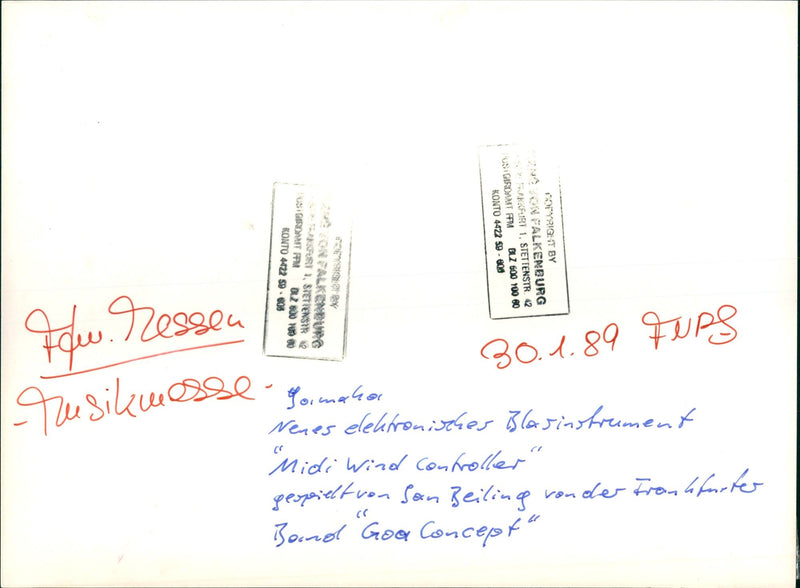 COPYRIGHT BY
VON FALKENBURG
FRANKFURT 1, STETTENSTR. 42
POSTGIROAMT FFM BLZ 500 100 60
KONTO 4422 59 - 608
COPYRIGHT BY
VON FALKENBURG
FRANKFURT 1, STETTENSTR. 42
POSTGIROAMT FFM BLZ 500 100 60
KONTO 4422 59 - 608
Messen
- Musikmesse -
30.1.89 FNPS
Yamaha
Neues elektronisches Blasinstrument
"Midi Wind Controller"
gespielt von Jan Beiling von der Frankfurter
Band "Goa Concept"